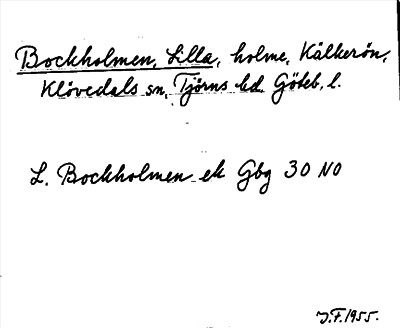 Bockholmen, Lilla, holme, Kålkerön,
Klövedals sn, Tjörns hd. Göteb. l.
L. Bockholmen ek Gbg 30 NO
J.F. 1955.